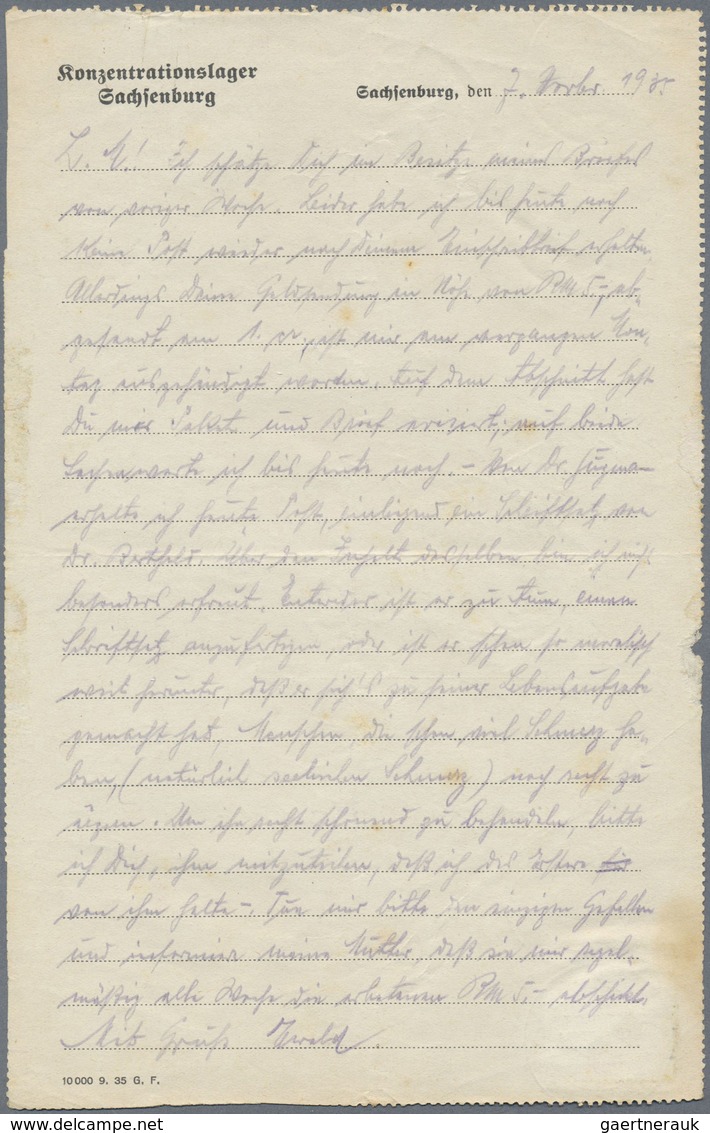 Konzentrationslager
Sachsenburg
Sachsenburg, den 7. Novbr. 1935
L. M.! Ich schätze Dich im Besitze meines Briefes
von voriger Woche. Leider habe ich bis heute noch
keine Post wieder nach Deinem Einschreibbrief erhalten.
Allerdings Deine Geldsendung in Höhe von RM 5.-, ab-
gesandt am 1. cr., ist mir am vergangen Mon-
tag ausgehändigt worden. Auf dem Abschnitt hast
Du mir Paket und Brief avisiert, auf beide
Sachen warte ich bis heute noch. - Von Dr.
erhalte ich heute Post, einliegend ein Schriftsatz von
Dr. Über den Inhalt desselben bin ich nicht
besonders erfreut. Entweder ist er zu dumm, einen
Schriftsatz anzufertigen, oder ist er schon so moralisch
weit herunter, daß er sich's zu seiner Lebensaufgabe
gemacht hat, Menschen, die schon viel Schmerz ha-
ben, (natürlich seelischen Schmerz) noch recht zu
ärgern. Um ihn recht schonend zu behandeln, bitte
ich Dich, ihm mitzuteilen, daß ich das Erstere
von ihm halte. - Tue mir bitte den einzigen Gefallen
und informier meine Mutter, daß sie mir regel-
mäßig alle Woche die erbetenen RM 5.- abschickt.
Mit Gruß Ewald.
10000 9. 35 G. F.
gaertnerauk